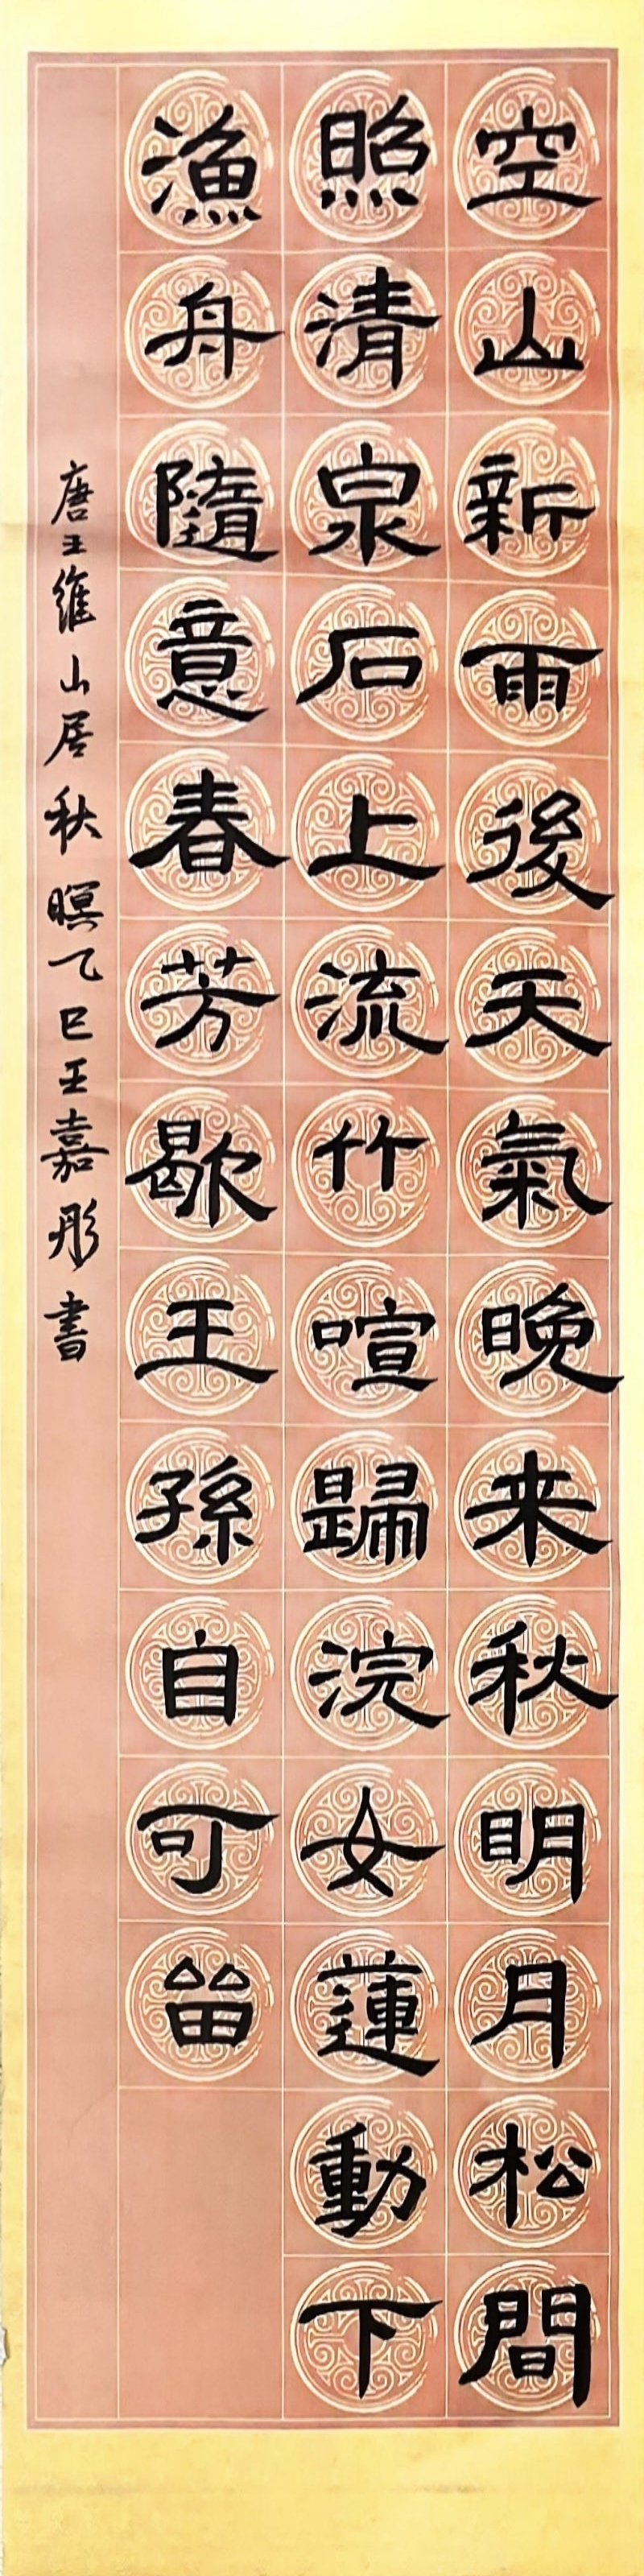 空山新雨後天氣晚来秋明月松間
照清泉石上流竹喧歸浣女蓮動下
漁舟隨意春芳歇王孫自可畱
唐王維山居秋暝乙巳王嘉彤書